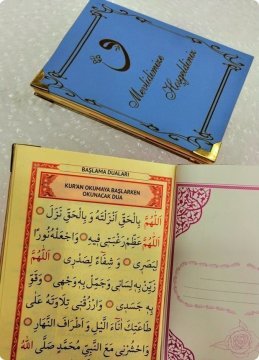 و
Mevlidimize
Hoşgeldiniz
BAŞLAMA DUALARI
KUR'AN OKUMAYA BAŞLARKEN
OKUNACAK DUA
اَللّٰهُمَّ بِالْحَقِّ اَنْزَلْتَهُ وَ بِالْحَقِّ نَزَلَ
اَللّٰهُمَّ عَظِّمْ رَغْبَتِى فِيهِ وَاجْعَلْهُ نُورًا
لِبَصَرِى وَ شِفَاءً لِصَدْرِى اَللّٰهُمَّ
زَيِّنْ بِهِ لِسَانِى وَجَمِّلْ بِهِ وَجْهِى وَقَوِّ
بِهِ جَسَدِى وَارْزُقْنِى تِلَاوَتَهُ عَلَى
طَاعَتِكَ اٰنَاءَ الَّيْلِ وَ اَطْرَافَ النَّهَارِ
وَاحْشُرْنِى مَعَ النَّبِىِّ مُحَمَّدٍ صَلَّى اللّٰهُ